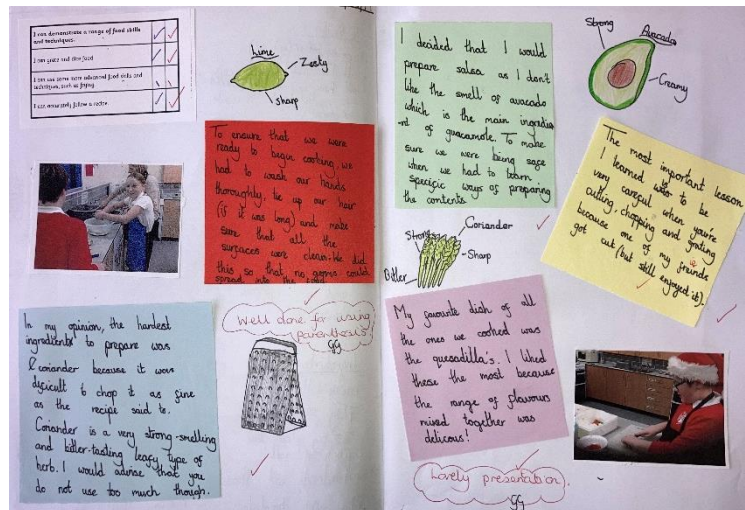 I can demonstrate a range of food skills
and techniques.
I can grate and slice food
I can use some more advanced food skills and
techniques, such as frying
I can accurately follow a recipe.
Lime
Zesty
sharp
To ensure that we were
ready to begin cooking, we
had to wash our hands
thoroughly, tie up our hair
(if it was long) and make
sure that all the
surfaces were clean. We did
this so that no germs could
spread into the food
In my opinion, the hardest
ingredients to prepare was
coriander because it was
dificult to chop it as fine
as the recipe said to.
Coriander is a very strong-smelling
and bitter-tasting leafy type of
herb. I would advise that you
do not use too much though.
Well done for using
parenthesis
GG
I decided that I would
prepare salsa as I don't
like the smell of avocado
which is the main ingredie
-nt of guacamole. To make
sure we were being safe
when we had to learn
specific ways of preparing
the contents.
Strong
Avocado
Creamy
The most important lesson
I learned was to be
very careful when you're
cutting, chopping and grating
because one of my friends
got cut (but still enjoyed it).
Coriander
Strong
Sharp
Bitter
My favourite dish of all
the ones we cooked was
the quesadilla's. I liked
these the most because
the range of flavours
mixed together was
delicous!
Lovely presentation.
GG